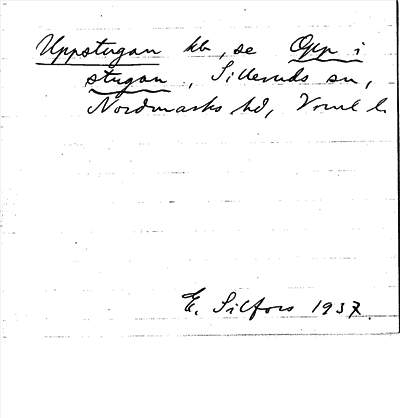 Uppstugan kb, se Opp i
stugan, Silleruds sn,
Nordmarks hd, Vrml l.
E. Silfors 1937.